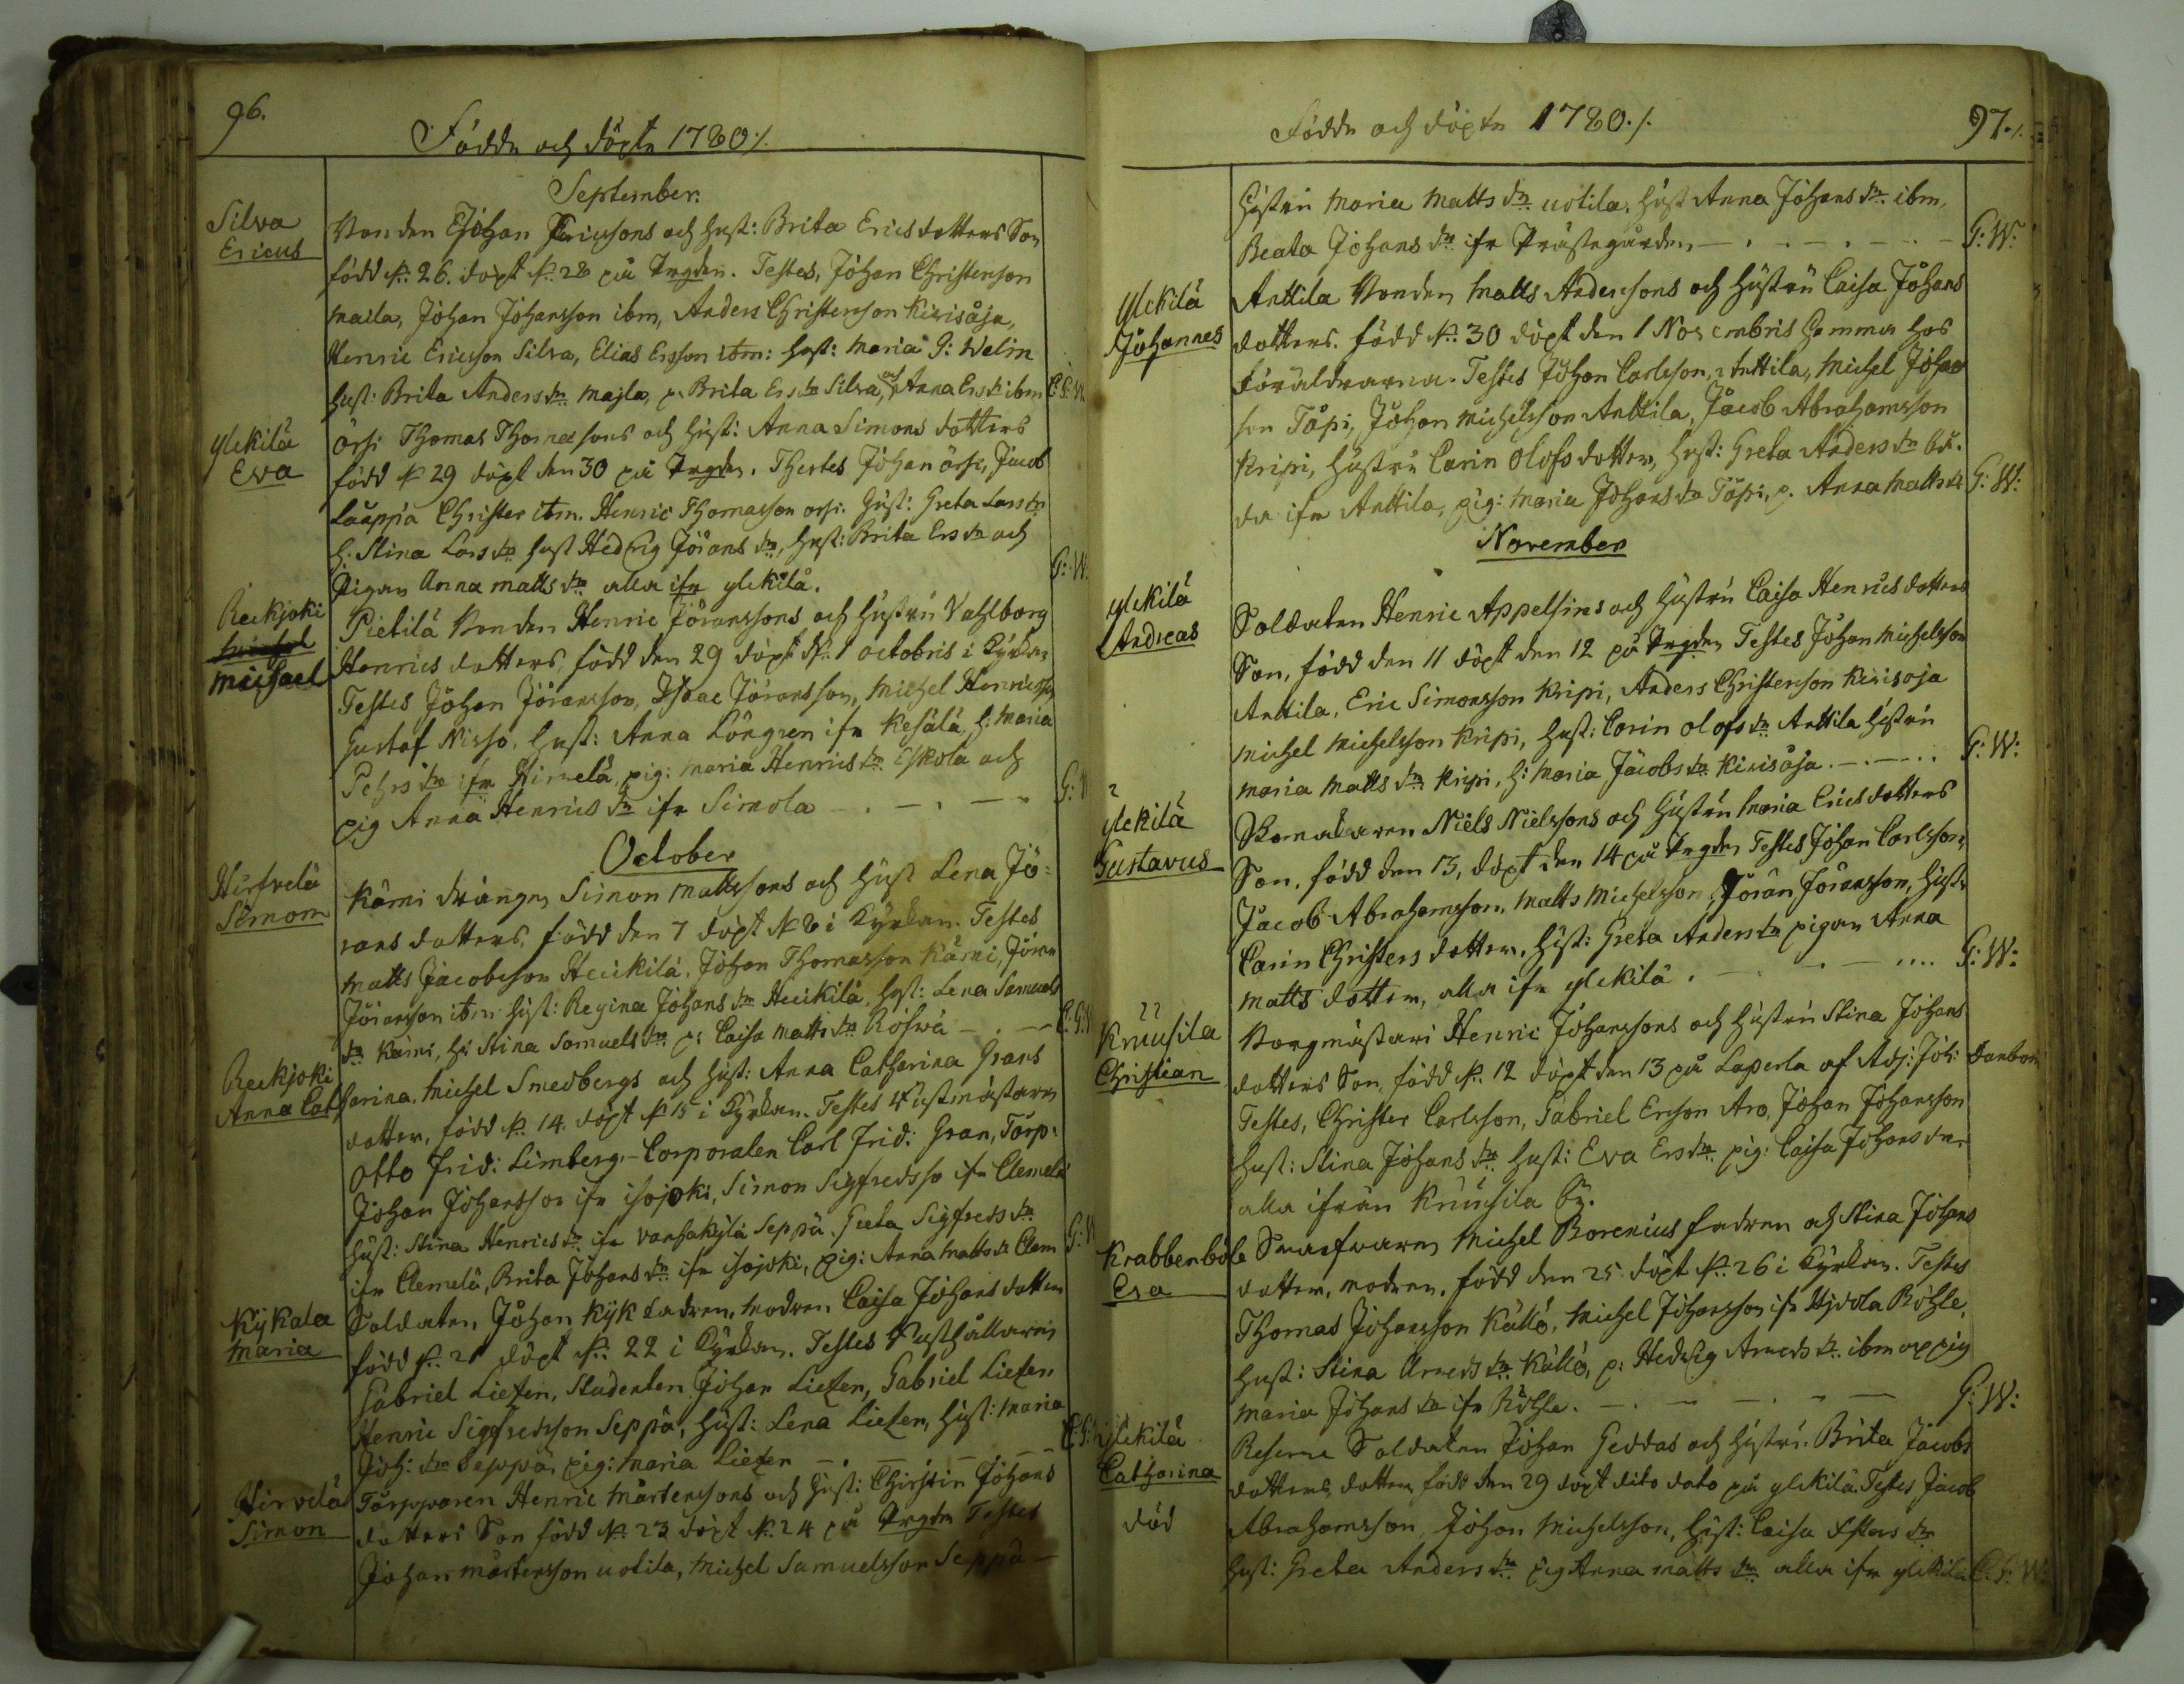 96.
Födde och döpte 1780 ⁒
September.
Silva
Ericus
Bonden Johan Ericssons och hust: Brita Ericsdotters Son
född d: 26. döpt d: 28 på Prgden. Testes, Johan Christersson
Maila, Johan Johansson ibm, Anders Christersson Kirisåja,
Henric Ericsson Silva, Elias Ersson ibm: hust: Maria G: Welin
hust: Brita Andersdr Majla, p. Brita Ersdr Silva, och Anna Ersdr ibm E. G: W.
Ylekilä
Eva
Örsi Thomas Thomassons och hust: Anna Simons dotters
född d 29 döpt den 30 på Prgden. Thestes Johan örsi, Jacob
Lauppa Christer ibm. Henric Thomasson örsi. hust: Greta Larsdr
h: Stina Larsdr hust Hedvig Jöransdr, hust: Brita Ersdr och
Pigan Anna Mattsdr alla ifr Ylekilä. G: W.
Reckjoki
Michael
Pietilä Bonden Henric Jöranssons och hustru Valborg
Henricsdotters, född den 29 döpt d: 1 octobris i Kyrkan
Testes Johan Jöransson, Isaac Jöransson, Michel Henricsson
Gustaf Nisso, hust: Anna Löngren ifr Kesälä, h: Maria
Pehrsdr ifr Hirvelä, pig: Maria Henricsdr Eskola och
pig Anna Henricsdr ifr Simola G: W
October
Hirfvelä
Simon
Kärni drängen Simon Mattssons och hust Lena Jö-
ransdotters, född den 7 döpt d 8 i Kyrkan. Testes
Matts Jacobsson Heickilä, Johan Thomasson Kärni, Jöran
Jöransson ibm hust: Regina Johansdr Heickilä, hust: Lena Samuels
dr Kärni, h: Stina Samuelsdr p: Caisa Mattsdr Rösvä E. G: W
Reckjoki
Anna Catharina. Michel Smedbergs och hust: Anna Catharina Grans
dotter, född d. 14. döpt d 15 i Kyrkan. Testes
Otto Frid: Limberg, Corporalen Carl Frid: Gran, Torp:
Johan Johansson ifr isojoki, Simon Sigfredsso ifr Clemelä
hust: Stina Henricsdr ifr vanhakylä Seppä, Greta Sigfredsdr
ifr Clemelä, Brita Johansdr ifr isojoki, pig: Anna Mattsdr Clem G: W
Kykala
Maria
Soldaten Johan Kyk fadren, modren Caisa Johansdotter
född d: 21 döpt d: 22 i Kyrkan. Testes
Gabriel Lietzen, Studenten Johan Lietzen, Gabriel Lietzen
Henric Sigfredsson Seppä, hust: Lena Lietzen, hust: Maria
Joh: dr Seppä, pig: Maria Lietzen E. G: W
Hirvelä
Simon
Torpparen Henric Mårtenssons och hust: Christin Johans
dotters Son född d: 23 döpt d: 24 på Prgdn Testes
Johan Mårtensson Uotila, Michel Samuelsson Seppä
Födde och döpte 1780 ⁒
97 ⁒
hustru Maria Mattsdr uotila, hust Anna Johansdr ibm,
Beata Johansdr ifr Prästegården G: W:
Ylekilä
Johannes
Anttila Bonden Matts Anderssons och hustru Caisa Johans
dotters. född d: 30 döpt den 1 Novembris hemma hos
Föräldrarna. Testes Johan Carlsson, Anttila, Michel Johans
son Töpi, Johan Michelsson Anttila, Jacob Abrahamsson
Kripi, hustru Carin Olofsdotter, hust: Greta Andersdr
ifr Anttila, pig: Maria Johansdr Töpi, p. Anna Mattsdr G: W:
November
Ylekilä
Andreas
Soldaten Henric Appelsins och hustru Caisa Henricsdotters
Son, född den 11 döpt den 12 på Prgden Testes Johan Michelsson
Anttila, Eric Simonsson Kripi, Anders Christersson Kirisoja
Michel Michelsson Kripi, hust: Carin Olofsdr Anttila hustru
Maria Mattsdr Kripi, h: Maria Jacobsdr Kirisåja G: W:
Ylekilä
Gustavus
Skomakaren Niels Nielssons och hustru Maria Ericsdotters
Son, född den 13, döpt den 14 på Prgden Testes Johan Carlsson,
Jacob Abrahamsson, Matts Michelsson, Jöran Jöransson, hust:
Carin Christersdotter, hust: Greta Andersdr pigan Anna
Matts dotter, alla ifr Ylekilä. G: W:
Knuusila
Christian
Borgmästari Henric Johanssons och hustru Stina Johans
dotters Son, född d: 12 döpt den 13 på Laperla af Adj: Joh: Danbom
Testes, Christer Carlsson, Gabriel Ersson Aro, Johan Johansson
hust: Stina Johansdr hust: Eva Ersdr pig: Caisa Johansdr
alla ifrån Knuusila by.
Krabbenböle
Eva
Svarfvaren Michel Borenius fadren och Stina Johans
dotter, modren, född den 25 döpt d: 26 i Kyrkan. Testes
Thomas Johansson Källö, Michel Johansson ifr Hyvola Röhle,
hust: Stina Arvedsdr Källö, p: Hedvig Arvedsdr ibm och pig
Maria Johansdr ifr Röhle. G: W:
Ylekilä
Catharina
död
Reserve Soldaten Johan Geddas och hustru Brita Jacobs
dotters, dotter född den 29 döpt dito dato på Ylekilä. Testes Jacob
Abrahamsson, Johan Michelsson, hust: Caisa Efters dr
hust: Greta Andersdr pig Anna Mattsdr alla ifr Ylekilä E. G: W: